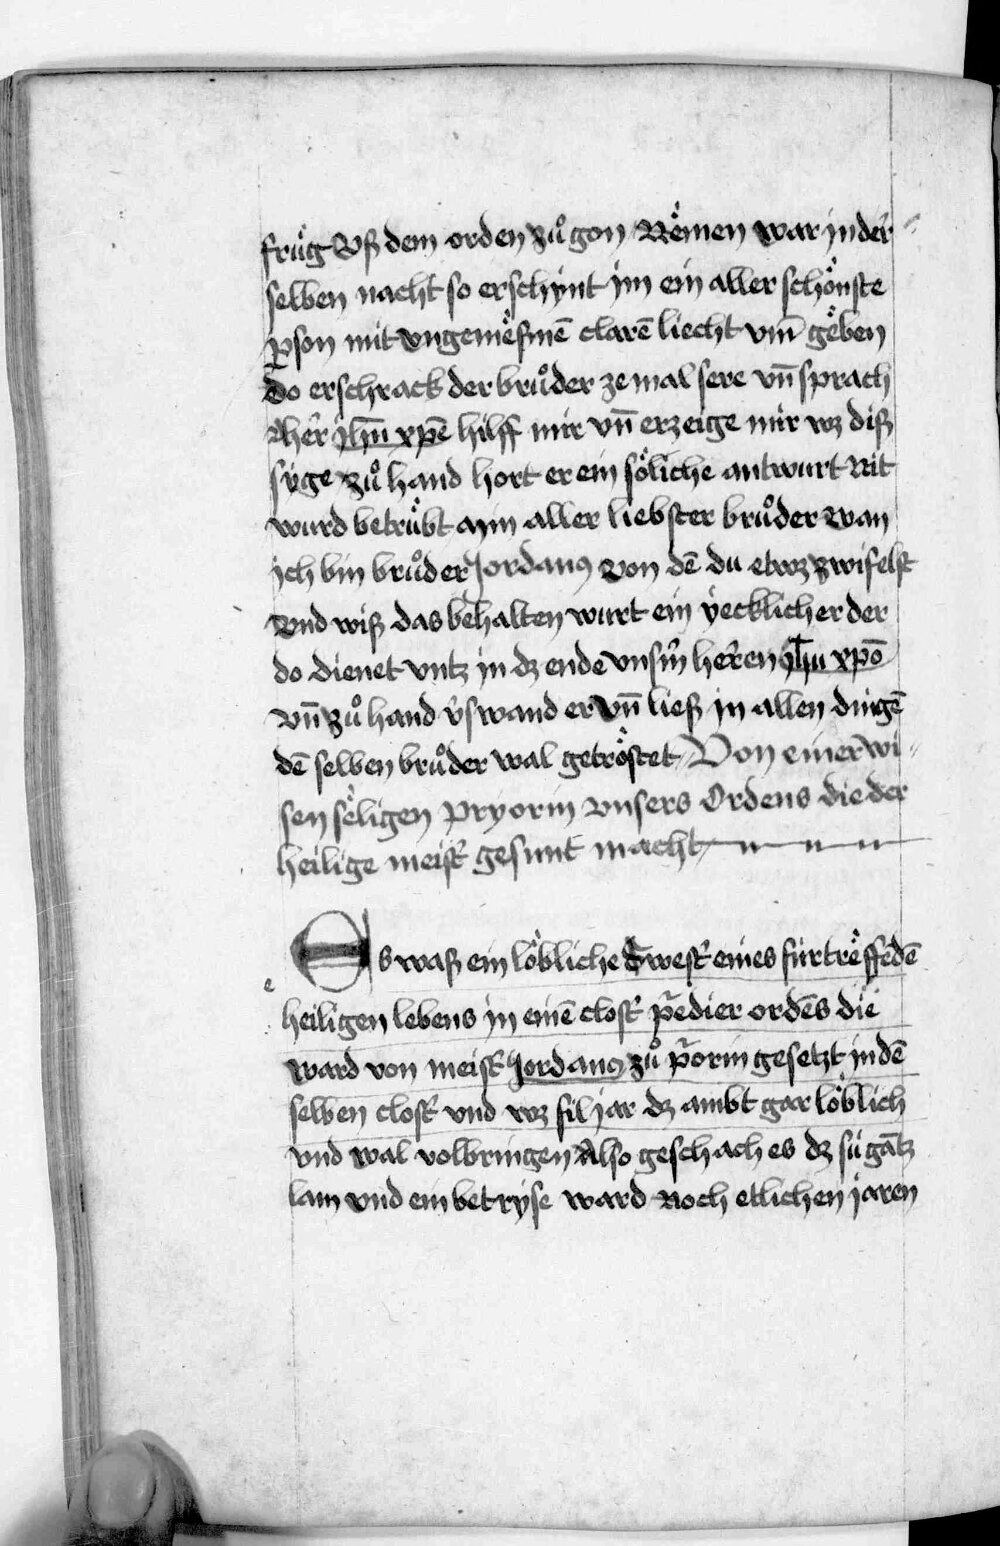 fruͤg Vß dem orden zuͦ gon Nemen war in der
selben nacht so erschynt jm ein aller schoͤnste
pson mit vngemeͤsnē clarē liecht vm̄ geͤben
Do erschrack der bruͦder ze mal sere vn̄ sprach
O her jhū xpē hilff mir vn̄ erzeige mir wz diß
syge zuͦ hand hort er ein soͤliche antwurt Nit
wurd betruͤbt a min aller liebster bruͦder wan
ich bin bruͦder Jordanꝰ von dē du etwz zwifelst
Vnd wiß das behalten wurt ein yecklicher der
do dienet vntz in dz ende vnsm̄ herren jhū xpō
vn̄ zuͦ hand v̓swand er vn̄ ließ in allen dingē
dē selben bruͦder wal getroͤstet Von einer wi-
sen seͤligen pryorin vnsers Ordens die der
heilige meist̓ gesunt macht
Es waß ein loͤbliche Swest̓ eines fürtreͤffēdē
e
heiligen lebens in einē clost̓ p̄edier ordēs die
ward von meist̓ Jordanꝰ zuͦ p̓orin gesetzt in dē
selben clost̓ vnd wz fil jar dz ambt gar loͤblich
vnd wal volbringen Also geschach es dz sü gātz
lam vnd ein betryse ward Noch etlichen jaren